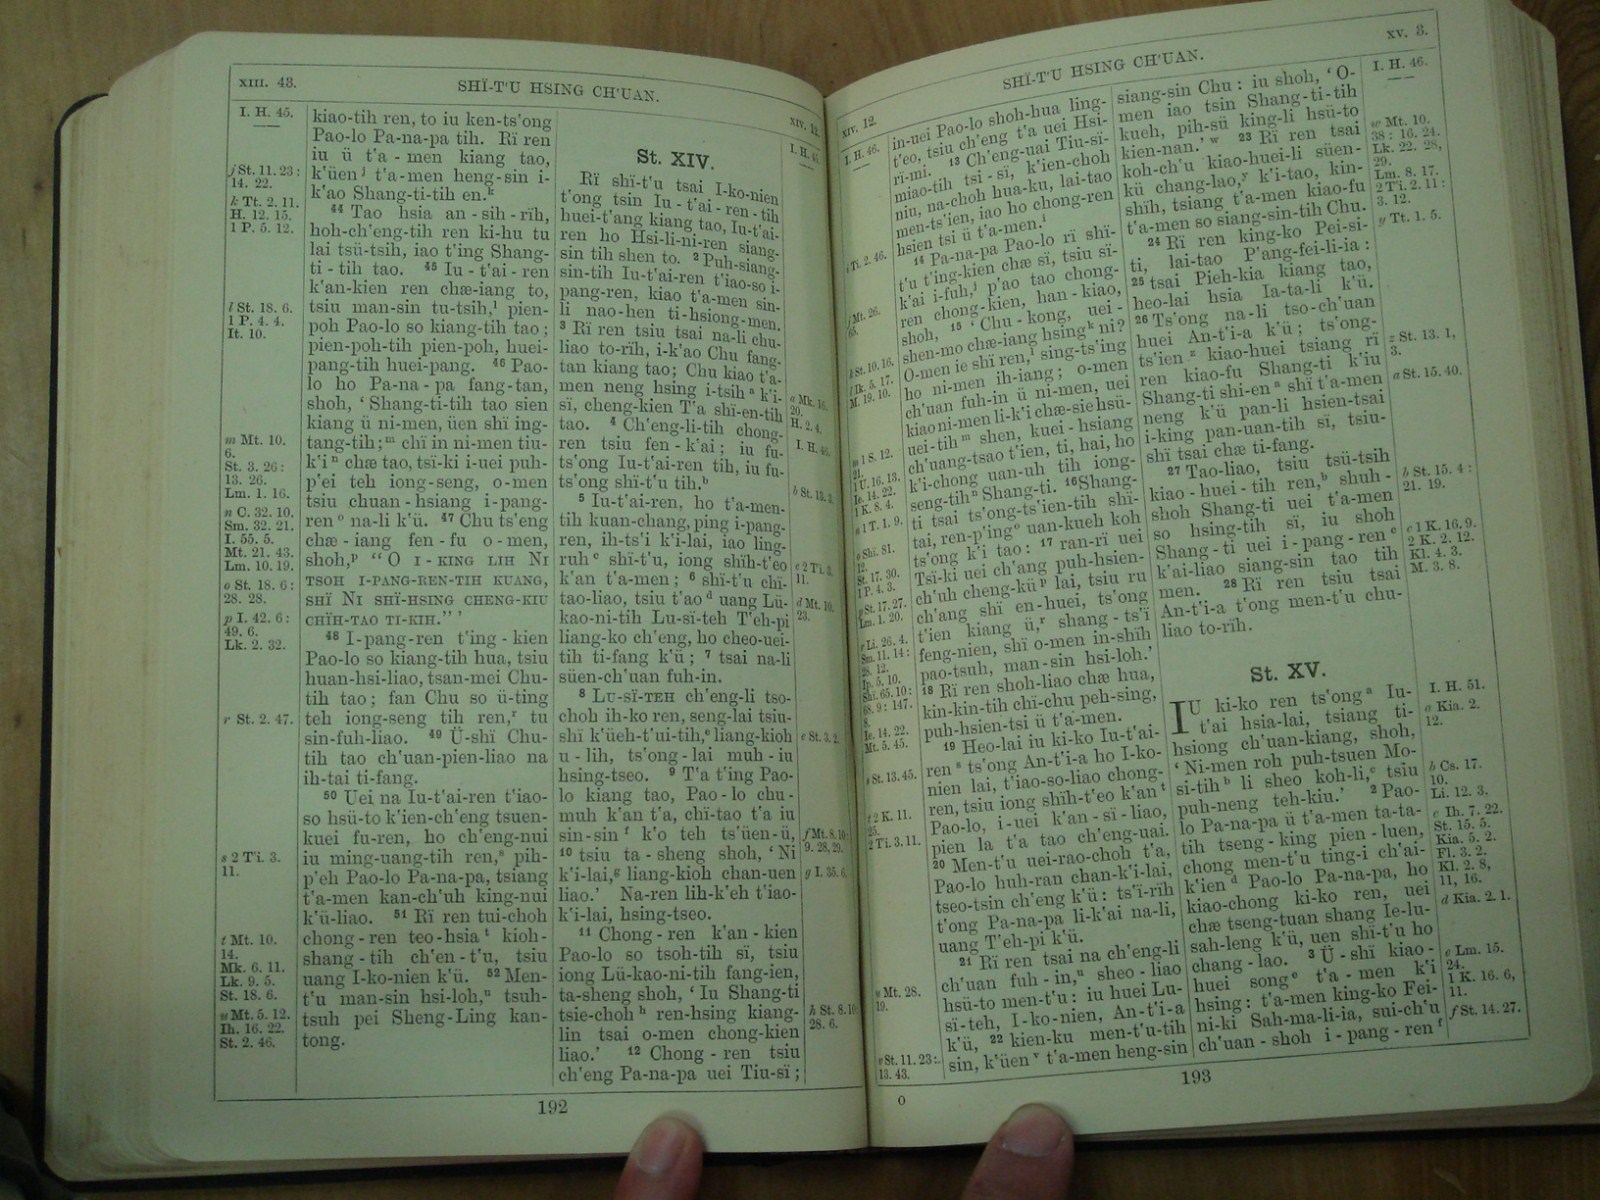 XIII. 43.
SHÏ-T'U HSING CH'UAN.
I. H. 45.
j St. 11. 23 :
14. 22.
k Tt. 2. 11.
H. 12. 15.
1 P. 5. 12.
l St. 18. 6.
1 P. 4. 4.
It. 10.
m Mt. 10.
6.
St. 3. 26 :
13. 26.
Lm. 1. 16.
n C. 32. 10.
Sm. 32. 21.
I. 55. 5.
Mt. 21. 43.
Lm. 10. 19.
o St. 18. 6 :
28. 28.
p I. 42. 6 :
49. 6.
Lk. 2. 32.
r St. 2. 47.
s 2 T'i. 3.
11.
t Mt. 10.
14.
Mk. 6. 11.
Lk. 9. 5.
St. 18. 6.
u Mt. 5. 12.
Ih. 16. 22.
St. 2. 46.
kiao-tih ren, to iu ken-ts'ong
Pao-lo Pa-na-pa tih. Rï ren
iu ü t'a-men kiang tao,
k'üen j t'a-men heng-sin i-
k'ao Shang-ti-tih en. k
44 Tao hsia an-sih-rïh,
hoh-ch'eng-tih ren ki-hu tu
lai tsü-tsih, iao t'ing Shang-
ti-tih tao. 45 Iu-t'ai-ren
k'an-kien ren chæ-iang to,
tsiu man-sin tu-tsih, l pien-
poh Pao-lo so kiang-tih tao ;
pien-poh-tih pien-poh, huei-
pang-tih huei-pang. 46 Pao-
lo ho Pa-na-pa fang-tan,
shoh, ‘ Shang-ti-tih tao sien
kiang ü ni-men, üen shï ing-
tang-tih ; m chï in ni-men tiu-
k'i n chæ tao, tsï-ki i-uei puh-
p'ei teh iong-seng, o-men
tsiu chuan-hsiang i-pang-
ren o na-li k'ü. 47 Chu ts'eng
chæ-iang fen-fu o-men,
shoh, p “ O I-KING LIH NI
TSOH I-PANG-REN-TIH KUANG,
SHÏ NI SHÏ-HSING CHENG-KIU
CHÏH-TAO TI-KIH.” ’
48 I-pang-ren t'ing-kien
Pao-lo so kiang-tih hua, tsiu
huan-hsi-liao, tsan-mei Chu-
tih tao ; fan Chu so ü-ting
teh iong-seng tih ren, r tu
sin-fuh-liao. 49 Ü-shï Chu-
tih tao ch'uan-pien-liao na
ih-tai ti-fang.
50 Uei na Iu-t'ai-ren t'iao-
so hsü-to k'ien-ch'eng tsuen-
kuei fu-ren, ho ch'eng-nui
iu ming-uang-tih ren, s pih-
p'eh Pao-lo Pa-na-pa, tsiang
t'a-men kan-ch'uh king-nui
k'ü-liao. 51 Rï ren tui-choh
chong-ren teo-hsia t kioh-
shang-tih ch'en-t'u, tsiu
uang I-ko-nien k'ü. 52 Men-
t'u man-sin hsi-loh, u tsuh-
tsuh pei Sheng-Ling kan-
tong.
St. XIV.
Rï shï-t'u tsai I-ko-nien
t'ong tsin Iu-t'ai-ren-tih
huei-t'ang kiang tao, Iu-t'ai-
ren ho Hsi-li-ni-ren siang-
sin tih shen to. 2 Puh-siang-
sin-tih Iu-t'ai-ren t'iao-so i-
pang-ren, kiao t'a-men sin-
li nao-hen ti-hsiong-men.
3 Rï ren tsiu tsai na-li chu-
liao to-rïh, i-k'ao Chu fang-
tan kiang tao ; Chu kiao t'a-
men neng hsing i-tsih a k'i-
sï, cheng-kien T'a shï-en-tih
tao. 4 Ch'eng-li-tih chong-
ren tsiu fen-k'ai ; iu fu-
ts'ong Iu-t'ai-ren tih, iu fu-
ts'ong shï-t'u tih. b
5 Iu-t'ai-ren, ho t'a-men-
tih kuan-chang, ping i-pang-
ren, ih-ts'i k'i-lai, iao ling-
ruh c shï-t'u, iong shïh-t'eo
k'an t'a-men ; 6 shï-t'u chï-
tao-liao, tsiu t'ao d uang Lü-
kao-ni-tih Lu-sï-teh T'eh-pi
liang-ko ch'eng, ho cheo-uei-
tih ti-fang k'ü ; 7 tsai na-li
süen-ch'uan fuh-in.
8 LU-SÏ-TEH ch'eng-li tso-
choh ih-ko ren, seng-lai tsiu-
shï k'üeh-t'ui-tih, e liang-kioh
u-lih, ts'ong-lai muh-iu
hsing-tseo. 9 T'a t'ing Pao-
lo kiang tao, Pao-lo chu-
muh k'an t'a, chï-tao t'a iu
sin-sin f k'o teh ts'üen-ü,
10 tsiu ta-sheng shoh, ‘ Ni
k'i-lai, g liang-kioh chan-uen
liao.’ Na-ren lih-k'eh t'iao-
k'i-lai, hsing-tseo.
11 Chong-ren k'an-kien
Pao-lo so tsoh-tih sï, tsiu
iong Lü-kao-ni-tih fang-ien,
ta-sheng shoh, ‘ Iu Shang-ti
tsie-choh h ren-hsing kiang-
lin tsai o-men chong-kien
liao.’ 12 Chong-ren tsiu
ch'eng Pa-na-pa uei Tiu-sï ;
a Mk. 16.
20.
H. 2. 4.
I. H. 46.
b St. 13. 3.
c 2 T'i. 3.
11.
d Mt. 10.
23.
e St. 3. 2.
f Mt. 8. 10 :
9. 28, 29.
g I. 35. 6.
h St. 8. 10 :
28. 6.
192
XIV. 12.
SHÏ-T'U HSING CH'UAN.
XV. 3.
I. H. 46.
i Ti. 2. 46.
k St. 10. 16.
M. 19. 10.
m 1 S. 12.
21.
Ie. 14. 22.
1 K. 8. 4.
n 1 T. 1. 9.
o Shï. 81.
12.
St. 17. 30.
1 P. 4. 3.
p St. 17. 27.
Lm. 1. 20.
r Li. 26. 4.
Sm. 11. 14 :
28. 12.
Ip. 5. 10.
Shï. 65. 10 :
68. 9 : 147.
8.
Ie. 14. 22.
Mt. 5. 45.
s St. 13. 45.
t 2 K. 11.
25.
2 T'i. 3. 11.
u Mt. 28.
19.
v St. 11. 23 :
13. 43.
in-uei Pao-lo shoh-hua ling-
t'eo, tsiu ch'eng t'a uei Hsi-
rï-mi. 13 Ch'eng-uai Tiu-sï-
miao-tih tsi-sï, k'ien-choh
niu, na-choh hua-ku, lai-tao
men-ts'ien, iao ho chong-ren
hsien tsi ü t'a-men. i
14 Pa-na-pa Pao-lo rï shï-
t'u t'ing-kien chæ sï, tsiu sï-
k'ai i-fuh, j p'ao tao chong-
ren chong-kien, han-kiao,
shoh, 15 ‘ Chu-kong, uei-
shen-mo chæ-iang hsing k ni ?
O-men ie shï ren, l sing-ts'ing
ho ni-men ih-iang ; o-men
ch'uan fuh-in ü ni-men, uei
kiao ni-men li-k'i chæ-sie hsü-
uei-tih m shen, kuei-hsiang
ch'uang-tsao t'ien, ti, hai, ho
k'i-chong uan-uh tih iong-
seng-tih n Shang-ti. 16 Shang-
ti tsai ts'ong-ts'ien-tih shï-
tai, ren-p'ing o uan-kueh koh
ts'ong k'i tao : 17 ran-rï uei
Tsï-ki uei ch'ang puh-hsien-
ch'uh cheng-kü p lai, tsiu ru
ch'ang shï en-huei, ts'ong
t'ien kiang ü, r shang-ts'ï
feng-nien, shï o-men in-shïh
pao-tsuh, man-sin hsi-loh.’
18 Rï ren shoh-liao chæ hua,
kin-kin-tih chi-chu peh-sing,
puh-hsien-tsi ü t'a-men.
19 Heo-lai iu ki-ko Iu-t'ai-
ren s ts'ong An-t'i-a ho I-ko-
nien lai, t'iao-so-liao chong-
ren, tsiu iong shïh-t'eo k'an t
Pao-lo, i-uei k'an-sï-liao,
pien la t'a tao ch'eng-uai.
20 Men-t'u uei-rao-choh t'a,
Pao-lo huh-ran chan-k'i-lai,
tseo-tsin ch'eng k'ü : ts'ï-rïh
t'ong Pa-na-pa li-k'ai na-li,
uang T'eh-pi k'ü.
21 Rï ren tsai na ch'eng-li
ch'uan fuh-in, u sheo-liao
hsü-to men-t'u : iu huei Lu-
sï-teh, I-ko-nien, An-t'i-a
k'ü, 22 kien-ku men-t'u-tih
sin, k'üen v t'a-men heng-sin
siang-sin Chu : iu shoh, ‘ O-
men iao tsin Shang-ti-tih
kueh, pih-sü king-li hsü-to
kien-nan.’ w 23 Rï ren tsai
koh-ch'u kiao-huei-li süen-
kü chang-lao, y k'i-tao, kin-
shïh, tsiang t'a-men kiao-fu
t'a-men so siang-sin-tih Chu.
24 Rï ren king-ko Pei-si-
ti, lai-tao P'ang-fei-li-ia :
25 tsai Pieh-kia kiang tao,
heo-lai hsia Ia-ta-li k'ü.
26 Ts'ong na-li tso-ch'uan
huei An-t'i-a k'ü ; ts'ong-
ts'ien z kiao-huei tsiang rï
ren kiao-fu Shang-ti k'iu
Shang-ti shi-en a shï t'a-men
neng k'ü pan-li hsien-tsai
i-king pan-uan-tih sï, tsiu-
shï tsai chæ ti-fang.
27 Tao-liao, tsiu tsü-tsih
kiao-huei-tih ren, b shuh-
shoh Shang-ti uei t'a-men
so hsing-tih sï, iu shoh
Shang-ti uei i-pang-ren c
k'ai-liao siang-sin tao tih
men. 28 Rï ren tsiu tsai
An-t'i-a t'ong men-t'u chu-
liao to-rïh.
St. XV.
IU ki-ko ren ts'ong a Iu-
t'ai hsia-lai, tsiang ti-
hsiong ch'uan-kiang, shoh,
‘ Ni-men roh puh-tsuen Mo-
si-tih b li sheo koh-li, c tsiu
puh-neng teh-kiu.’ 2 Pao-
lo Pa-na-pa ü t'a-men ta-ta-
tih tseng-king pien-luen,
chong men-t'u ting-i ch'ai-
k'ien d Pao-lo Pa-na-pa, ho
kiao-chong ki-ko ren, uei
chæ tseng-tuan shang Ie-lu-
sah-leng k'ü, uen shï-t'u ho
chang-lao. 3 Ü-shï kiao-
huei song e t'a-men k'i
hsing : t'a-men king-ko Fei-
ni-ki Sah-ma-li-ia, sui-ch'u
ch'uan-shoh i-pang-ren f
I. H. 46.
w Mt. 10.
38 : 16. 24.
Lk. 22. 28,
29.
Lm. 8. 17.
2 T'i. 2. 11 :
3. 12.
y Tt. 1. 5.
z St. 13. 1,
3.
a St. 15. 40.
b St. 15. 4 :
21. 19.
c 1 K. 16. 9.
2 K. 2. 12.
Kl. 4. 3.
M. 3. 8.
I. H. 51.
a Kia. 2.
12.
b Cs. 17.
10.
Li. 12. 3.
c Ih. 7. 22.
St. 15. 5.
Kia. 5. 2.
Fl. 3. 2.
Kl. 2. 8,
11, 16.
d Kia. 2. 1.
e Lm. 15.
24.
1 K. 16. 6,
11.
f St. 14. 27.
193
O